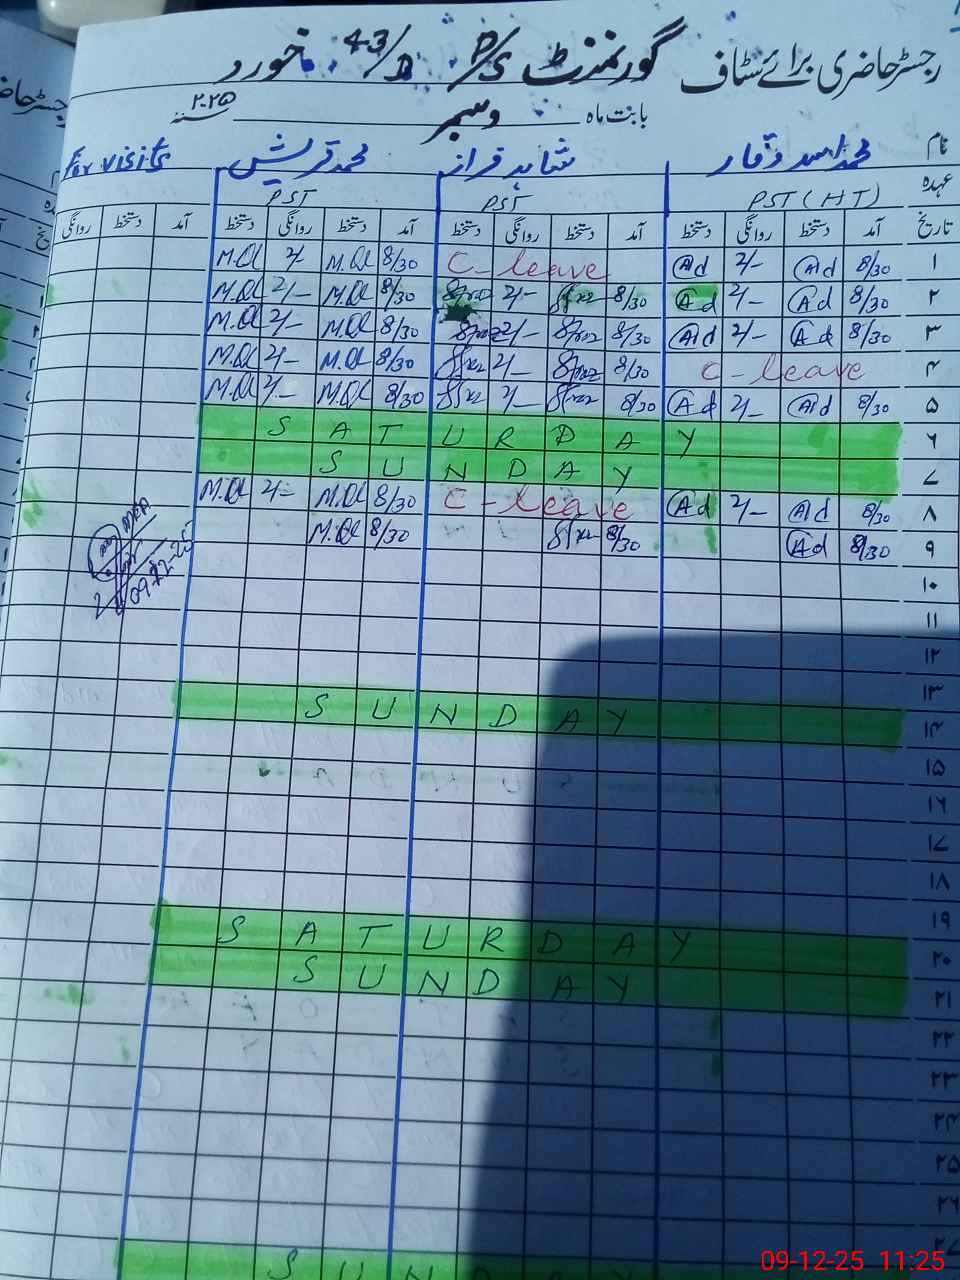 رجسٹر حاضری برائے سٹاف گورنمنٹ P/S 43/D خورد
بابت ماہ دسمبر سنہ ۲۰۲۵
نام محمد اسد وقار شاہد فراز محمد قریش For visits
عہدہ PST (HT) PST PST
تاریخ آمد دستخط روانگی دستخط آمد دستخط روانگی دستخط آمد دستخط روانگی دستخط آمد دستخط روانگی
۱ 8/30 Ad 2/- Ad C-leave 8/30 M.Ql 2/- M.Ql
۲ 8/30 Ad 2/- Ad 8/30 2/- 8/30 M.Ql 2/- M.Ql
۳ 8/30 Ad 2/- Ad 8/30 2/- 8/30 M.Ql 2/- M.Ql
۴ C-leave 8/30 2/- 8/30 M.Ql 2/- M.Ql
۵ 8/30 Ad 2/- Ad 8/30 2/- 8/30 M.Ql 2/- M.Ql
۶ SATURDAY
۷ SUNDAY
۸ 8/30 Ad 2/- Ad C-leave 8/30 M.Ql 2/- M.Ql
۹ 8/30 Ad 8/30 8/30 M.Ql
MEA
09-12-25
۱۰
۱۱
۱۲
۱۳
۱۴ SUNDAY
۱۵
۱۶
۱۷
۱۸
۱۹
۲۰ SATURDAY
۲۱ SUNDAY
۲۲
۲۳
۲۴
۲۵
۲۶
۲۷
SUND
09-12-25 11:25